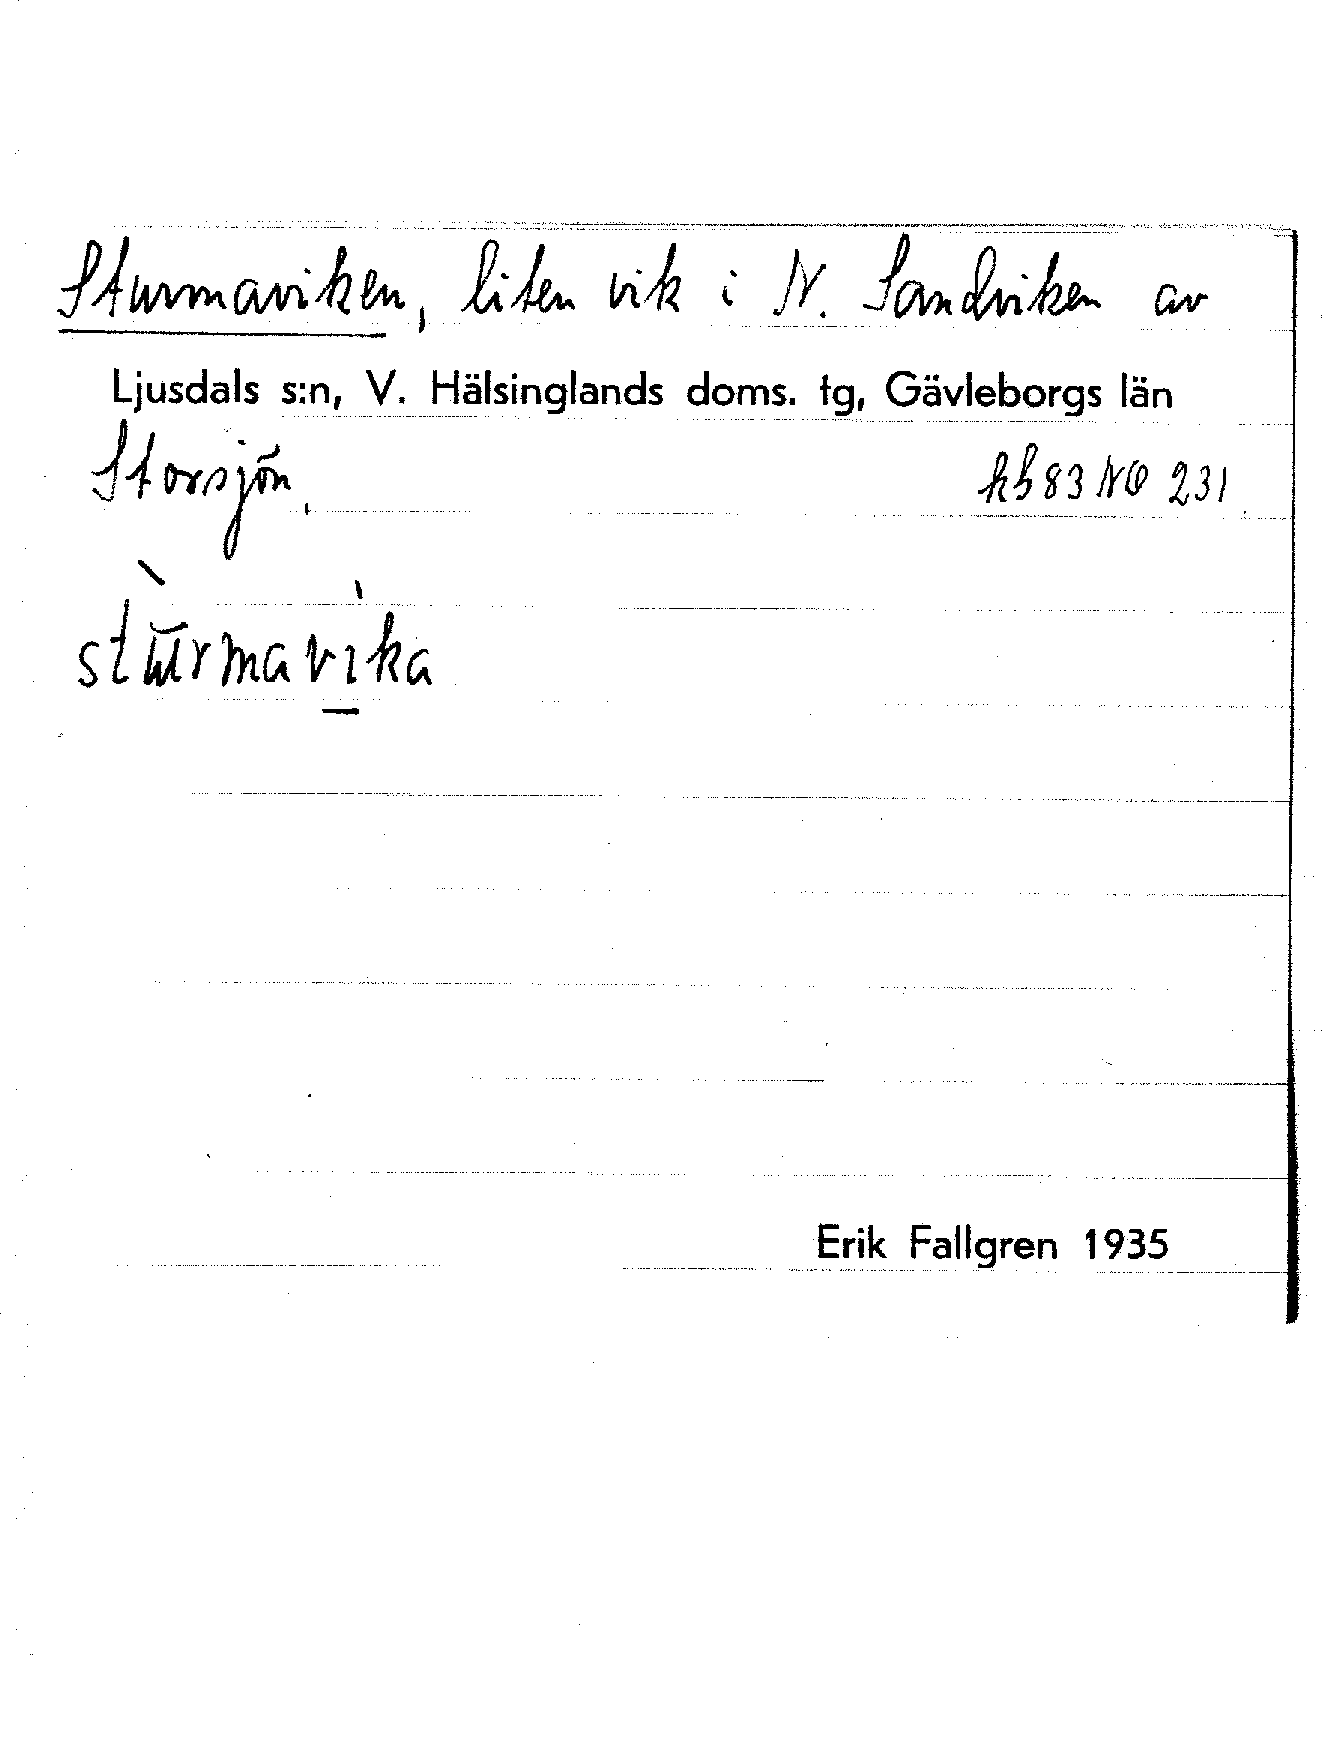 Sturmaviken, liten vik i N. Sandviken av
Ljusdals s:n, V. Hälsinglands doms. tg, Gävleborgs län
Storsjön. kb 83 NO 231
stùrmavìka
Erik Fallgren 1935